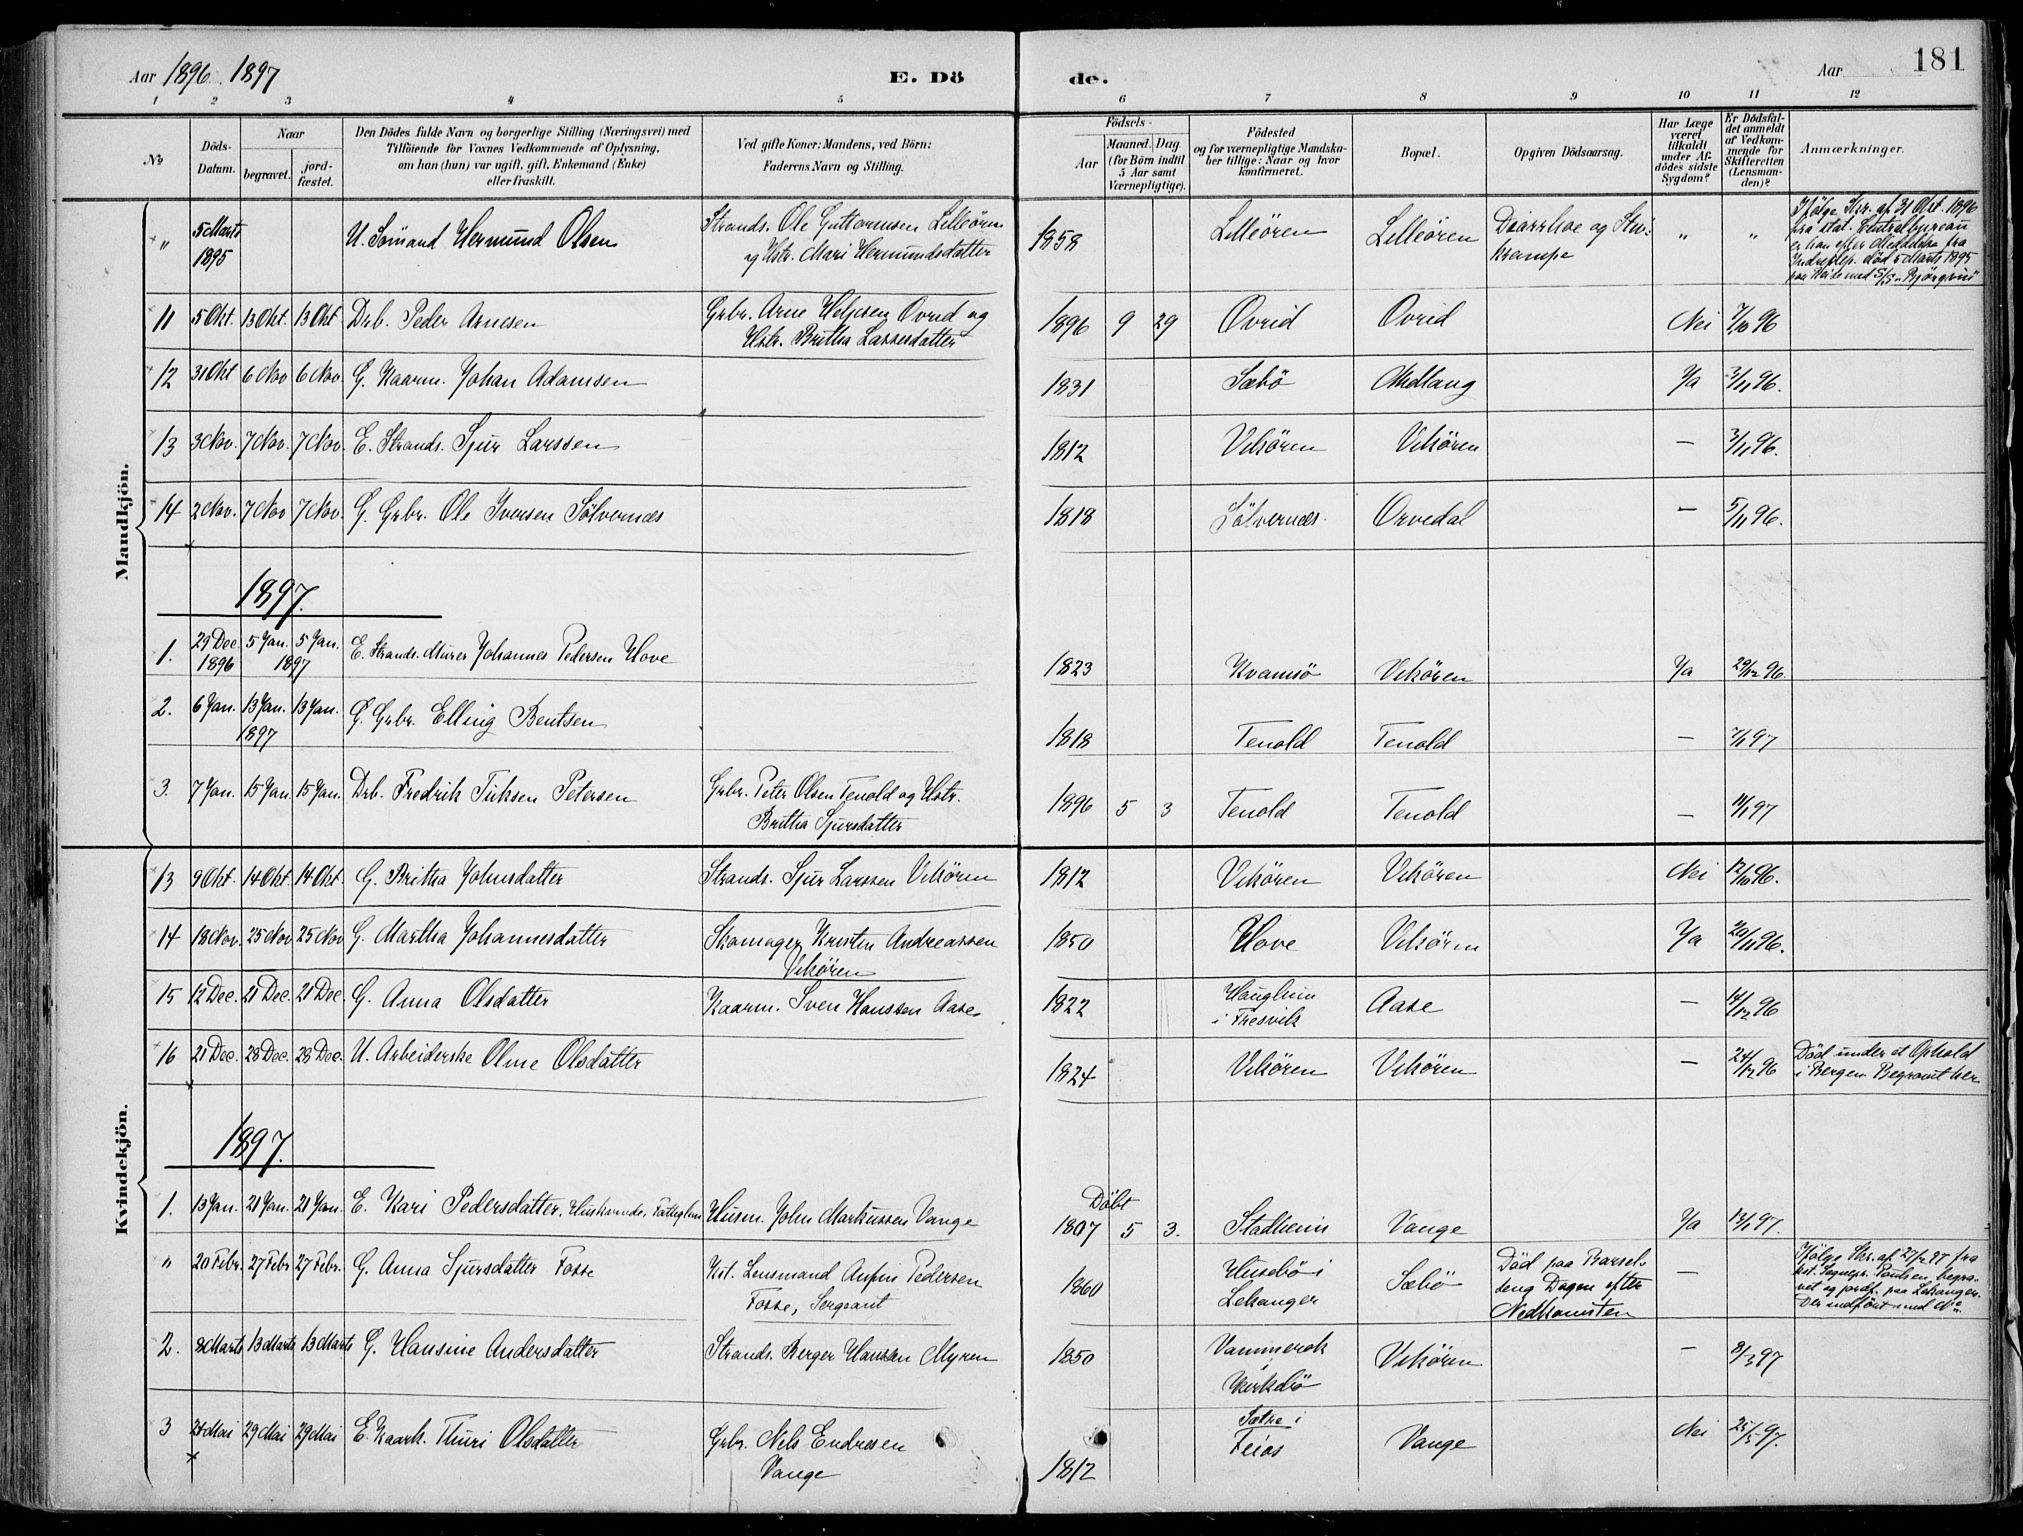 Aar 1896. 1897 E. Dö de. Aar 181
1 2 3 4 5 6 7 8 9 10 11 12
No Döds-Datum. Naar begravet. jord-fæstet. Den Dödes fulde Navn og borgerlige Stilling (Næringsvei) med Tilföiende for Voxnes Vedkommende af Oplysning, om han (hun) var ugift, gift, Enkemand (Enke) eller fraskilt. Ved gifte Koner: Mandens, ved Börn: Faderens Navn og Stilling. Födsels- Aar Maaned. Dag (for Börn indtil 5 Aar samt Værnepligtige). Födested og for værnepligtige Mandskaber tillige: Naar og hvor konfirmeret. Bopæl. Opgiven Dödsaarsag. Har Læge været tilkaldt under Afdödes sidste Sygdom? Er Dödsfaldet anmeldt af Vedkommende for Skifteretten (Lensmanden)? Anmærkninger.
Mandkjön.
" 5 Marts 1895 U. Sömand Hermund Olsen Strands. Ole Guttormsen Lilleören og Hstr. Mari Hermundsdatter 1858 Lilleören Lilleören Diarrhoe og krampe " " Ifölge Skr. af 31 Okt. 1896 fra stat. Centralbureau er han efter Meddelelse fra Indredep. död 5 Marts 1895 paa
11 5 Okt. 13 Okt. 13 Okt Drb. Peder Arnesen Grbr. Arne Heljesen Ovrid og Hstr. Britha Lassesdatter 1896 9 29 Ovrid Ovrid Nei 7/10 96
12 31 Okt 6 Nov 6 Nov. G. Kaarm. Johan Adamsen 1831 Sæbö Midlang Ja 3/11 96.
13 3 Nov. 7 Nov. 7 Nov. E. Strands. Sjur Larssen 1812 Vikören Vikören — 3/11 96.
14 2 Nov. 7 Nov 7 Nov. G. Grbr. Ole Iversen Sölvernæs 1818 Sölvernæs. Orvedal — 5/11 96.
1897.
1. 29 Dec. 1896 5 Jan. 1897 5 Jan. E. Strands. Murer Johannes Pedersen Hove 1823 Kvamsö Vikören Ja 29/12 96.
2. 6 Jan. 13 Jan. 1897 13 Jan. G. Grbr. Elling Bentsen 1818 Tenold Tenold — 7/1 97
3. 7 Jan. 15 Jan. 15 Jan. Drb. Fredrik Petersen Grbr. Peter Olsen Tenold og Hstr. Britha Sjursdatter 1896 5 3 Tenold Tenold — 11/1 97
Kvindekjön.
13 9 Okt. 14 Okt 14 Okt. G. Britha Johnsdatter Strands. Sjur Larssen Vikören 1812 Vikören Vikören Nei 12/10 96.
14 18 Nov. 25 Nov 25 Nov G. Martha Johannesdatter Skomager Kristen Andreassen Vikören 1850 Hove Vikören Ja 20/11 96.
15 12 Dec. 21 Dec. 21 Dec. G. Anna Olsdatter Kaarm. Sven Hanssen Aase 1822 Hauglum i Fresvik Aase — 14/12 96
16 21 Dec. 28 Dec. 28 Dec. U. Arbeiderske Oline Olsdatter 1824 Vikören Vikören — 24/12 96 Död under et Ophold i Bergen Begravet her
1897.
1. 13 Jan. 21 Jan. 21 Jan. E. Kari Pedersdatter, Huskvinde, Fattiglem Husm. John Markussen Vange Döbt 1807 5 3. Stadheim Vange Ja 13/1 97.
" 20 Febr. 27 Febr 27 Febr. G. Anna Sjursdatter Fosse Kst. Lensmand Anfin Pedersen Fosse, Sergeant 1860 Husebö i Lekanger Sæbö Död paa Barselseng Dagen efter Nedkomsten — Ifölge Skr. af 27/2 97 fra kst. Sognepr. Paulsen, begravet og jordf. paa Lekanger. Der indfört med No.
2. 8 Marts 13 Marts 13 Marts G. Hansine Andersdatter Strands. Berger Hansen Myren 1850 Vammerok i Kirkebö Vikören — 8/3 97
3 24 Mai 29 Mai 29 Mai E. Kaark. Thuri Olsdatter Grbr. Nels Endresen Vange 1812 Sætre i Feios Vange Nei 25/5 97.